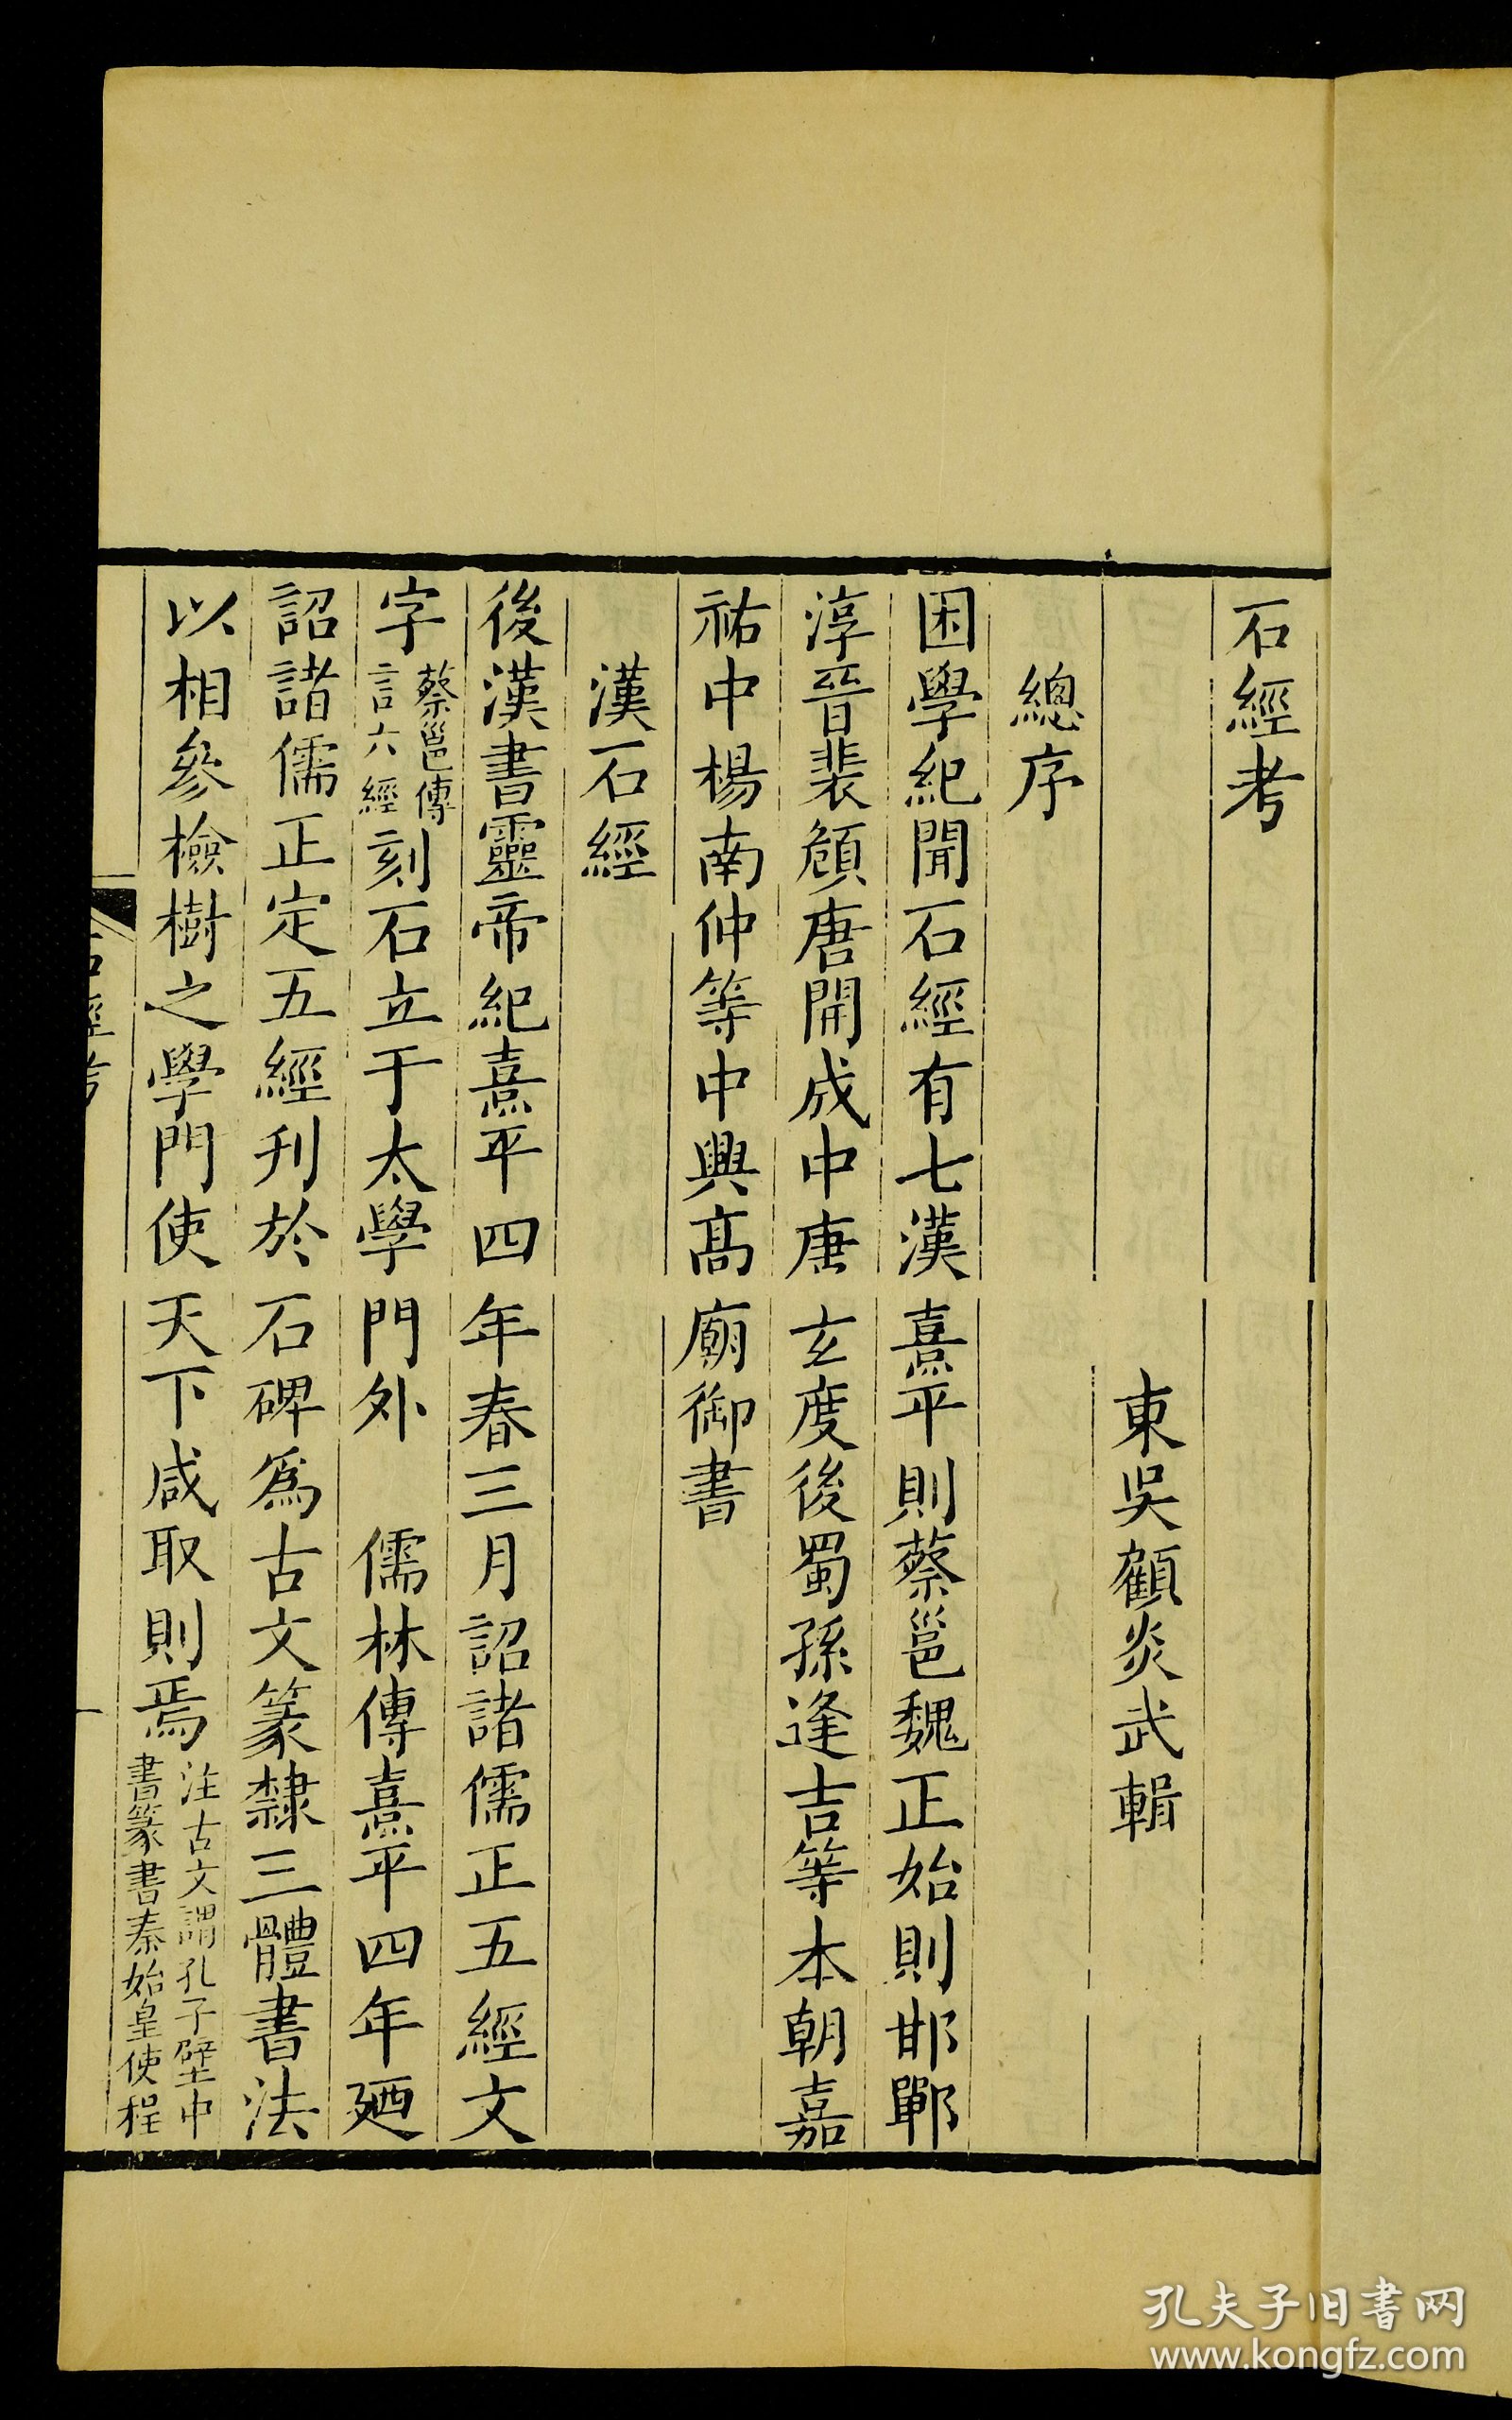 石經考
東吳顧炎武輯
總序
困學紀聞石經有七漢熹平則蔡邕魏正始則邯鄲
淳晉裴頠唐開成中唐玄度後蜀孫逢吉等本朝嘉
祐中楊南仲等中興高廟御書
漢石經
後漢書靈帝紀熹平四年春三月詔諸儒正五經文
字蔡邕傳言六經刻石立于太學門外 儒林傳熹平四年廼
詔諸儒正定五經刊於石碑爲古文篆隸三體書法
以相參檢樹之學門使天下咸取則焉注古文謂孔子壁中書篆書秦始皇使程
石經考
一
孔夫子旧书网
www.kongfz.com